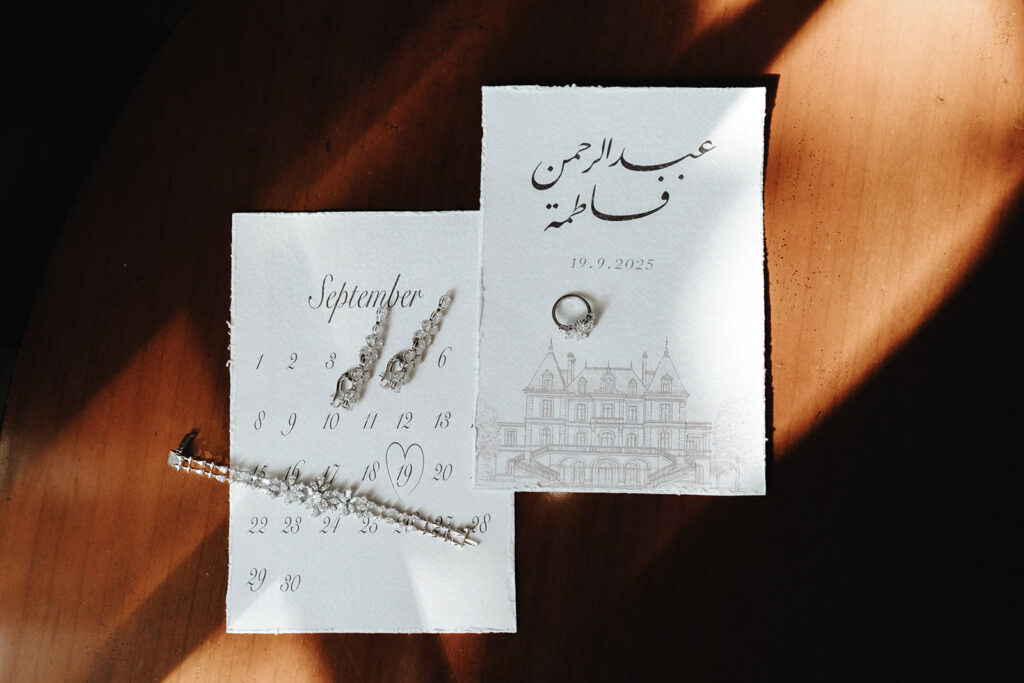 عبدالرحمن
فاطمة
19.9.2025
September
1 2 3 6
8 9 10 11 12 13
15 16 17 18 19 20
22 23 24 25 26 27 28
29 30